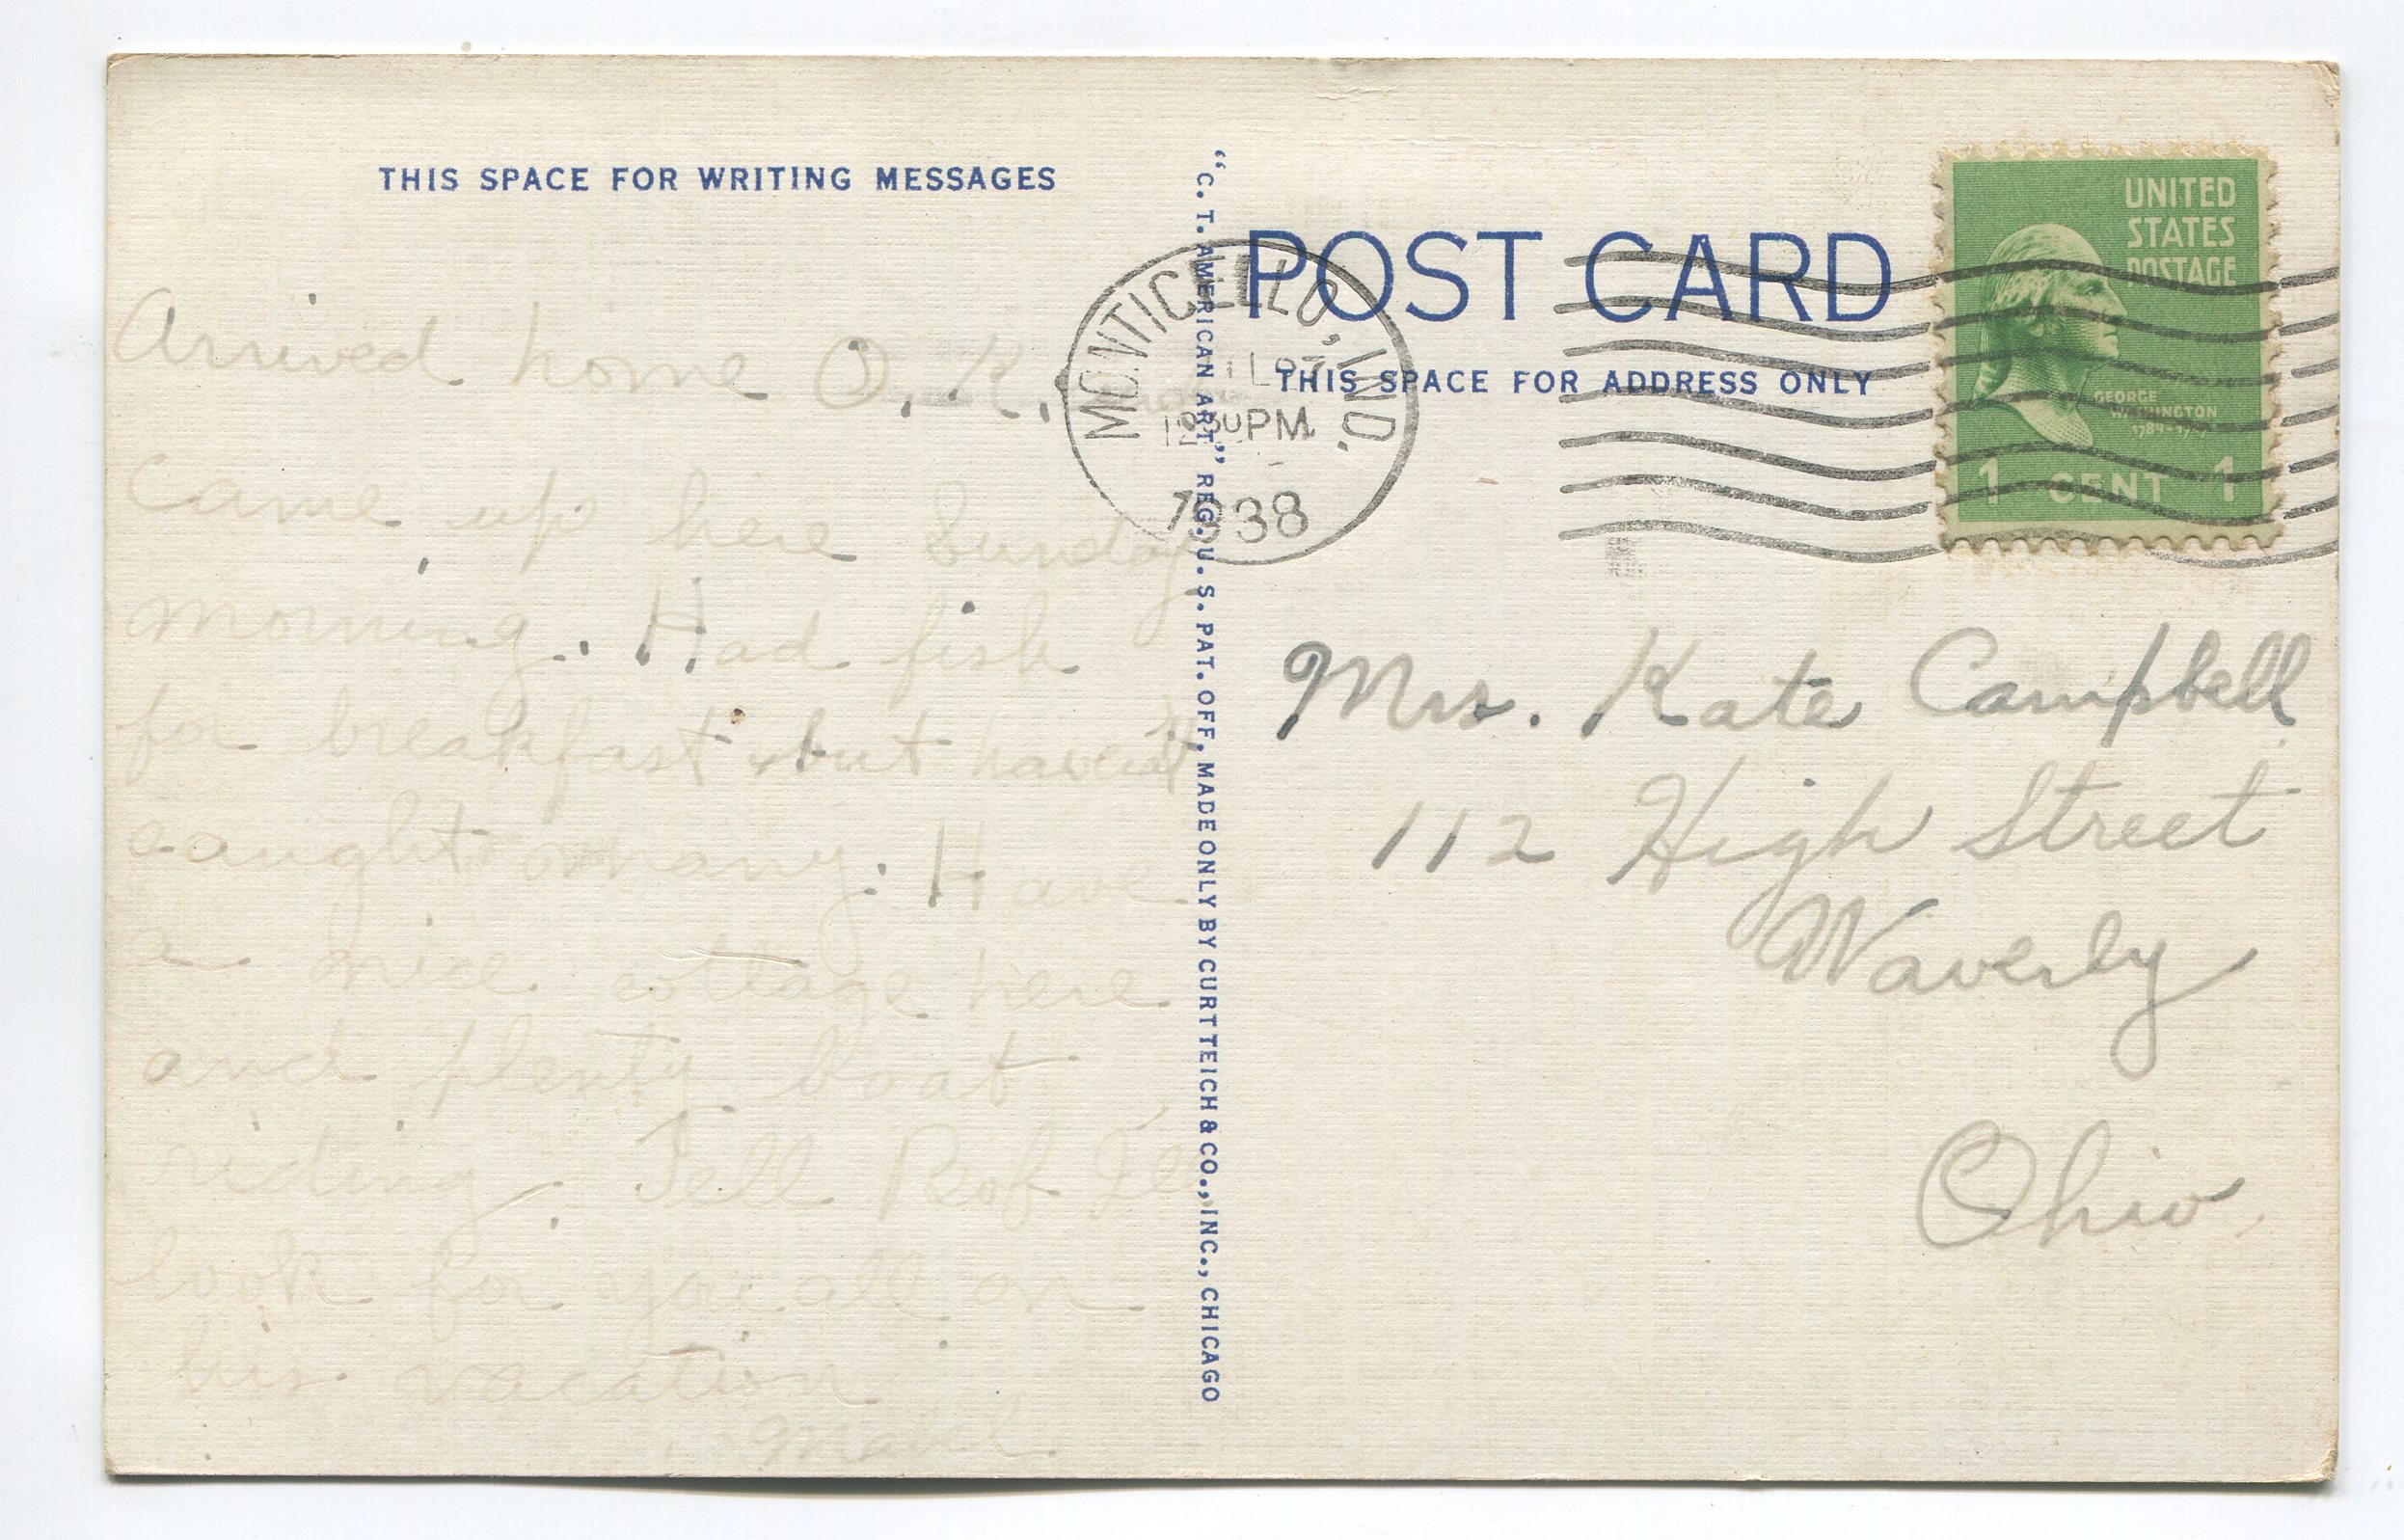 THIS SPACE FOR WRITING MESSAGES
Arrived home O. K.
Came up here Sunday
morning. Had fish
for breakfast but haven't
caught many. Have
a nice cottage here
and plenty boat
riding. Tell Rob I'll
look for you all on
his vacation
Mabel.
"C. T. AMERICAN ART" REG. U. S. PAT. OFF. MADE ONLY BY CURT TEICH & CO., INC., CHICAGO
POST CARD
THIS SPACE FOR ADDRESS ONLY
MONTICELLO, IND.
PM
1938
UNITED
STATES
POSTAGE
GEORGE
WASHINGTON
1 CENT 1
Mrs. Kate Campbell
112 High Street
Waverly
Ohio.